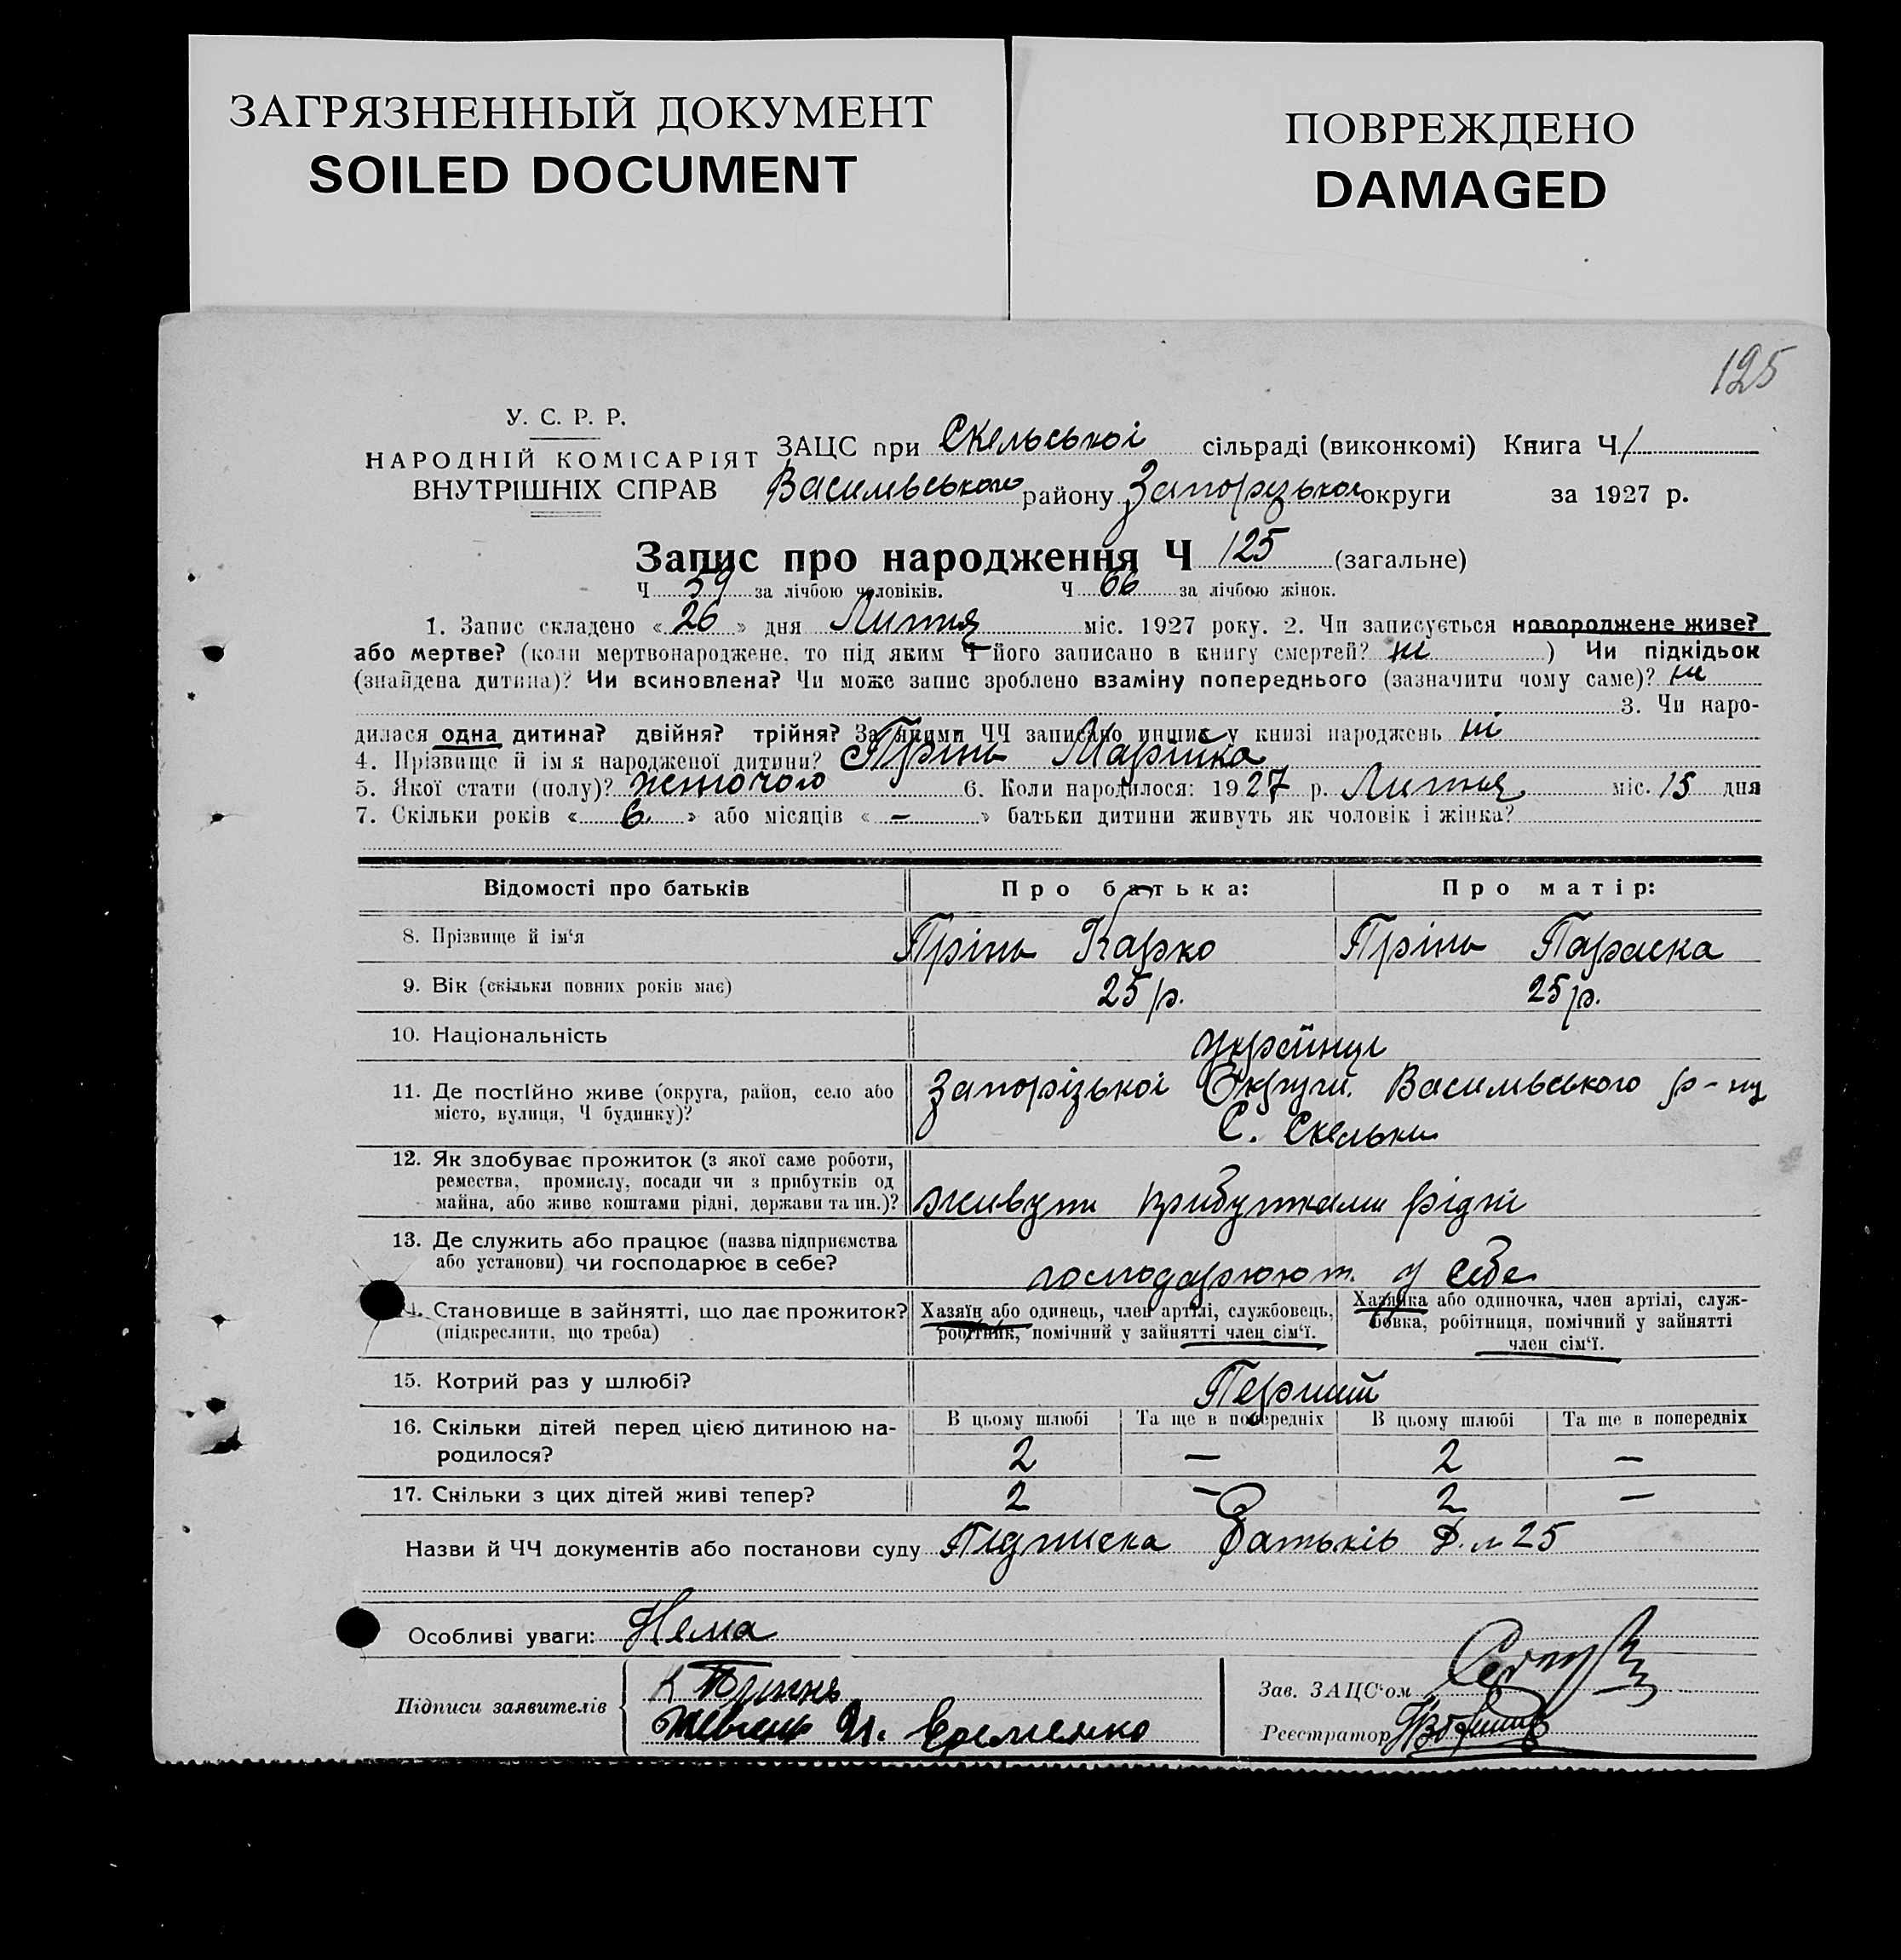 ЗАГРЯЗНЕННЫЙ ДОКУМЕНТ
SOILED DOCUMENT
ПОВРЕЖДЕНО
DAMAGED
125
У. С. Р. Р.
НАРОДНІЙ КОМІСАРІЯТ
ВНУТРІШНІХ СПРАВ
ЗАЦС при Скельської сільраді (виконкомі) Книга Ч 1
Васильвського району Запорізької округи за 1927 р.
Запис про народження Ч 125 (загальне)
Ч 59 за лічбою чоловіків. Ч 66 за лічбою жінок.
1. Запис складено « 26 » дня Липня міс. 1927 року. 2. Чи записується новороджене живе?
або мертве? (коли мертвонароджене, то під яким Ч його записано в книгу смертей? ні ) Чи підкідьок
(знайдена дитина)? Чи всиновлена? Чи може запис зроблено взаміну попереднього (зазначити чому саме)? ні
3. Чи наро-
дилася одна дитина? двійня? трійня? За якими ЧЧ записано инших у книзі народжень ні
4. Прізвище й ім я народженої дитини? Прінь Марійка
5. Якої стати (полу)? жіночого 6. Коли народилося: 1927 р. Липня міс. 15 дня
7. Скільки років « 6 » або місяців « – » батьки дитини живуть як чоловік і жінка?
Відомості про батьків Про батька: Про матір:
8. Прізвище й ім‘я Прінь Карко Прінь Параска
9. Вік (скільки повних років має) 25 р. 25 р.
10. Національність українці
11. Де постійно живе (округа, район, село або
місто, вулиця, Ч будинку)?
Запорізької Округи. Васильвського р-ну
С. Скельки
12. Як здобуває прожиток (з якої саме роботи,
ремества, промислу, посади чи з прибутків од
майна, або живе коштами рідні, держави та ин.)?
живуть прибутками рідні
13. Де служить або працює (назва підприємства
або установи) чи господарює в себе?
господарюют. у себе
14. Становище в зайнятті, що дає прожиток?
(підкреслити, що треба)
Хазяїн або одинець, член артілі, службовець,
робітник, помічний у зайнятті член сім‘ї.
Хазяйка або одиночка, член артілі, служ-
бовка, робітниця, помічний у зайнятті
член сім‘ї.
15. Котрий раз у шлюбі? Перший
16. Скільки дітей перед цією дитиною на-
родилося?
В цьому шлюбі Та ще в попередніх В цьому шлюбі Та ще в попередніх
2 – 2 –
17. Скільки з цих дітей живі тепер? 2 – 2 –
Назви й ЧЧ документів або постанови суду Підписка Батьків
Особливі уваги: Нема
Підписи заявителів
К Прінь
И. Еременко
Зав. ЗАЦС‘ом
Реєстратор